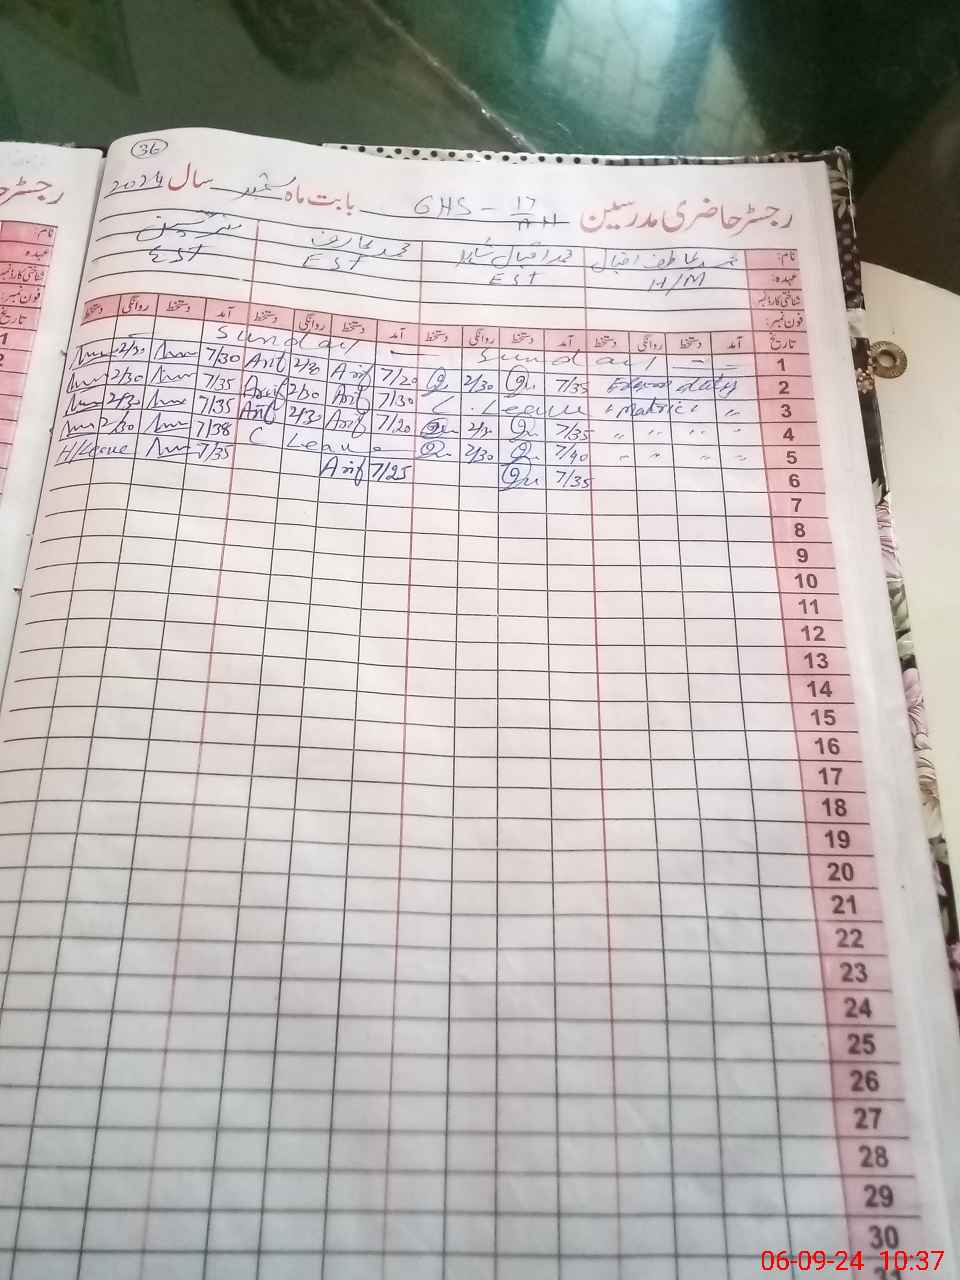 36
رجسٹر حاضری مدرسین GHS - 17/AH بابت ماہ ستمبر سال 2024
نام: محمد عاطف اقبال محمد اقبال محمد عارف
عہدہ: H/M EST EST EST
شناختی کارڈ نمبر:
فون نمبر:
تاریخ آمد دستخط روانگی دستخط آمد دستخط روانگی دستخط آمد دستخط روانگی دستخط آمد دستخط روانگی دستخط
1 Sunday Sunday
2 Exam duty 7/35 2/30 7/20 Arif 2/30 Arif 7/30 2/30
3 Matric " C. Leave 7/30 Arif 2/30 Arif 7/35 2/30
4 " " " " 7/35 2/30 7/20 Arif 2/30 Arif 7/35 2/30
5 " " " " 7/40 2/30 C Leave 7/38 2/30
6 7/35 7/25 Arif 7/35 H/Leave
7
8
9
10
11
12
13
14
15
16
17
18
19
20
21
22
23
24
25
26
27
28
29
30
31
رجسٹر
نام:
عہدہ:
شناختی کارڈ نمبر
فون نمبر:
تاریخ
1
2
06-09-24 10:37